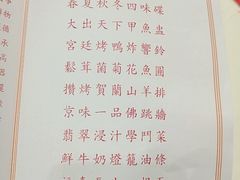 春夏秋冬四味碟
大出天下甲魚盅
宮廷烤鴨炸響鈴
鬆茸菌菊花魚圓
烤賀蘭山羊排
京味一品佛跳牆
翡翠浸汁學鬥菜
鮮牛奶燈龍油條